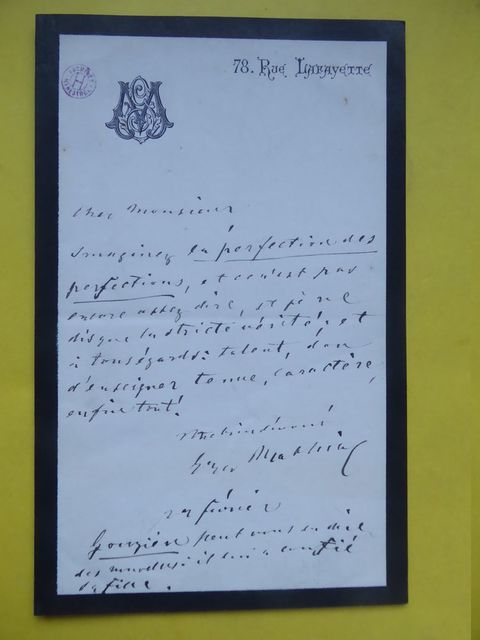 78. Rue Lafayette
Cher Monsieur
Imaginez la perfection des
perfections, et ce n'est pas
encore assez dire, et je ne
dis que la stricte vérité, et
à tous égards: talent, don
d'enseigner tenue, caractère,
enfin tout!
février
Gouzien peut vous en dire
des il lui a confié
sa fille.